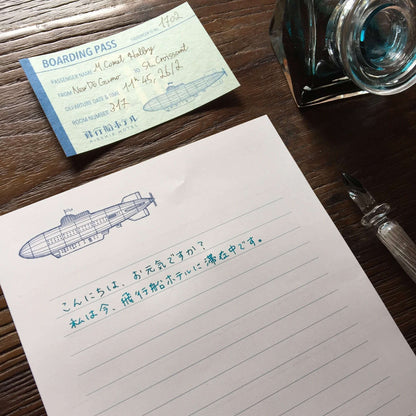 BOARDING PASS
PASSENGER NO. 1702
PASSENGER NAME M. Camel Hallby
FROM New Do Gumo TO St. Crossward
DEPARTURE DATE & TIME 11:45, 26/2
ROOM NUMBER 317
飛行船ホテル
AIRSHIP HOTEL
こんにちは、お元気ですか?
私は今、飛行船ホテルに滞在中です。